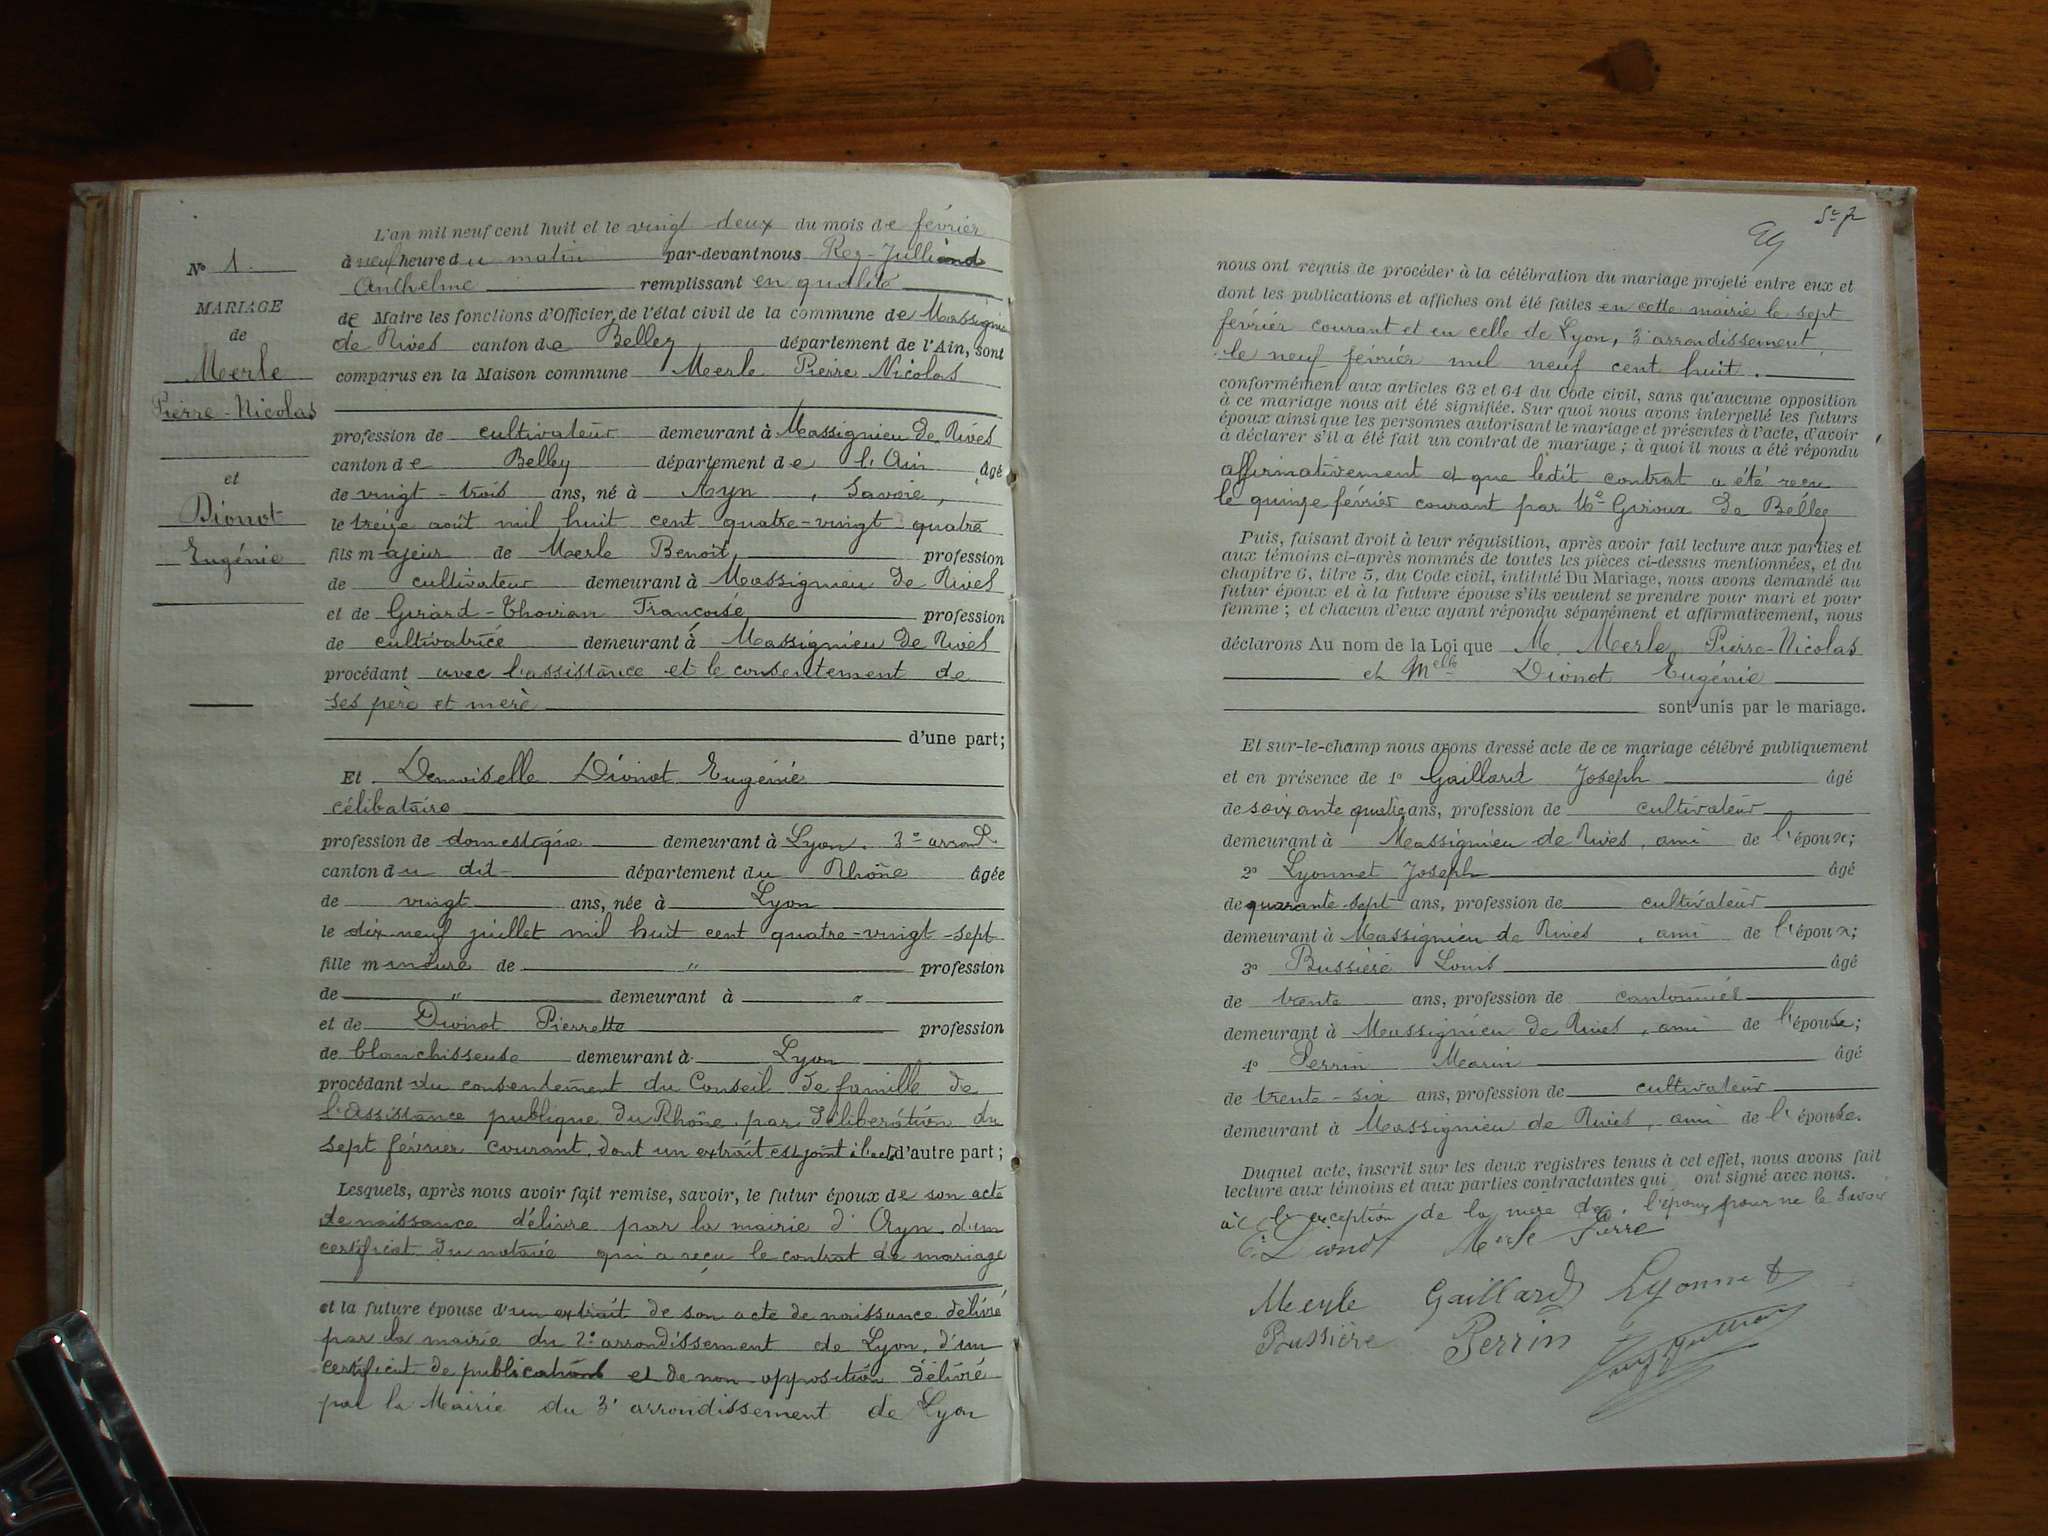 N° 1.
MARIAGE
de
Merle
Pierre-Nicolas
et
Dionot
Eugénie
L'an mil neuf cent huit et le vingt deux du mois de février
à neuf heure du matin par-devant nous Rey-Julliand
Anthelme remplissant en qualité
de Maire les fonctions d'Officier de l'état civil de la commune de Massignieu
de Rives canton de Belley département de l'Ain, sont
comparus en la Maison commune Merle Pierre Nicolas
profession de cultivateur demeurant à Massignieu de Rives
canton de Belley département de l'Ain âgé
de vingt-trois ans, né à Ayn, Savoie,
le treize août mil huit cent quatre-vingt quatre
fils majeur de Merle Benoît, profession
de cultivateur demeurant à Massignieu de Rives
et de Girard-Thovian Françoise profession
de cultivatrice demeurant à Massignieu de Rives
procédant avec l'assistance et le consentement de
ses père et mère
d'une part;
Et Demoiselle Dionot Eugénie
célibataire
profession de domestique demeurant à Lyon. 3e arrond.
canton du dit département du Rhône âgée
de vingt ans, née à Lyon
le dix neuf juillet mil huit cent quatre-vingt-sept
fille mineure de " profession
de " demeurant à "
et de Dionot Pierrette profession
de blanchisseuse demeurant à Lyon
procédant du consentement du Conseil de famille de
l'Assistance publique du Rhône par délibération du
sept février courant, dont un extrait est joint à l'acte d'autre part;
Lesquels, après nous avoir fait remise, savoir, le futur époux de son acte
de naissance délivré par la mairie d'Ayn, d'un
certificat du notaire qui a reçu le contrat de mariage
et la future épouse d'un extrait de son acte de naissance délivré
par la mairie du 2e arrondissement de Lyon, d'un
certificat de publications et de non opposition délivré
par la Mairie du 3e arrondissement de Lyon
nous ont requis de procéder à la célébration du mariage projeté entre eux et
dont les publications et affiches ont été faites en cette mairie le sept
février courant et en celle de Lyon, 3e arrondissement,
le neuf février mil neuf cent huit.
conformément aux articles 63 et 64 du Code civil, sans qu'aucune opposition
à ce mariage nous ait été signifiée. Sur quoi nous avons interpellé les futurs
époux ainsi que les personnes autorisant le mariage et présentes à l'acte, d'avoir
à déclarer s'il a été fait un contrat de mariage; à quoi il nous a été répondu
affirmativement et que ledit contrat a été reçu
le quinze février courant par Me Giroux de Belley
Puis, faisant droit à leur réquisition, après avoir fait lecture aux parties et
aux témoins ci-après nommés de toutes les pièces ci-dessus mentionnées, et du
chapitre 6, titre 5, du Code civil, intitulé Du Mariage, nous avons demandé au
futur époux et à la future épouse s'ils veulent se prendre pour mari et pour
femme; et chacun d'eux ayant répondu séparément et affirmativement, nous
déclarons Au nom de la Loi que M. Merle Pierre-Nicolas
et Melle Dionot Eugénie
sont unis par le mariage.
Et sur-le-champ nous avons dressé acte de ce mariage célébré publiquement
et en présence de 1° Gaillard Joseph âgé
de soixante quatre ans, profession de cultivateur
demeurant à Massignieu de Rives, ami de l'époux;
2° Lyonnet Joseph âgé
de quarante-sept ans, profession de cultivateur
demeurant à Massignieu de Rives, ami de l'époux;
3° Bussière Louis âgé
de trente ans, profession de cantonnier
demeurant à Massignieu de Rives, ami de l'épouse;
4° Perrin Marin âgé
de trente-six ans, profession de cultivateur
demeurant à Massignieu de Rives, ami de l'épouse.
Duquel acte, inscrit sur les deux registres tenus à cet effet, nous avons fait
lecture aux témoins et aux parties contractantes qui ont signé avec nous.
à l'exception de la mère de l'époux pour ne le savoir
E. Dionot Merle Pierre
Merle Gaillard Lyonnet
Bussière Perrin